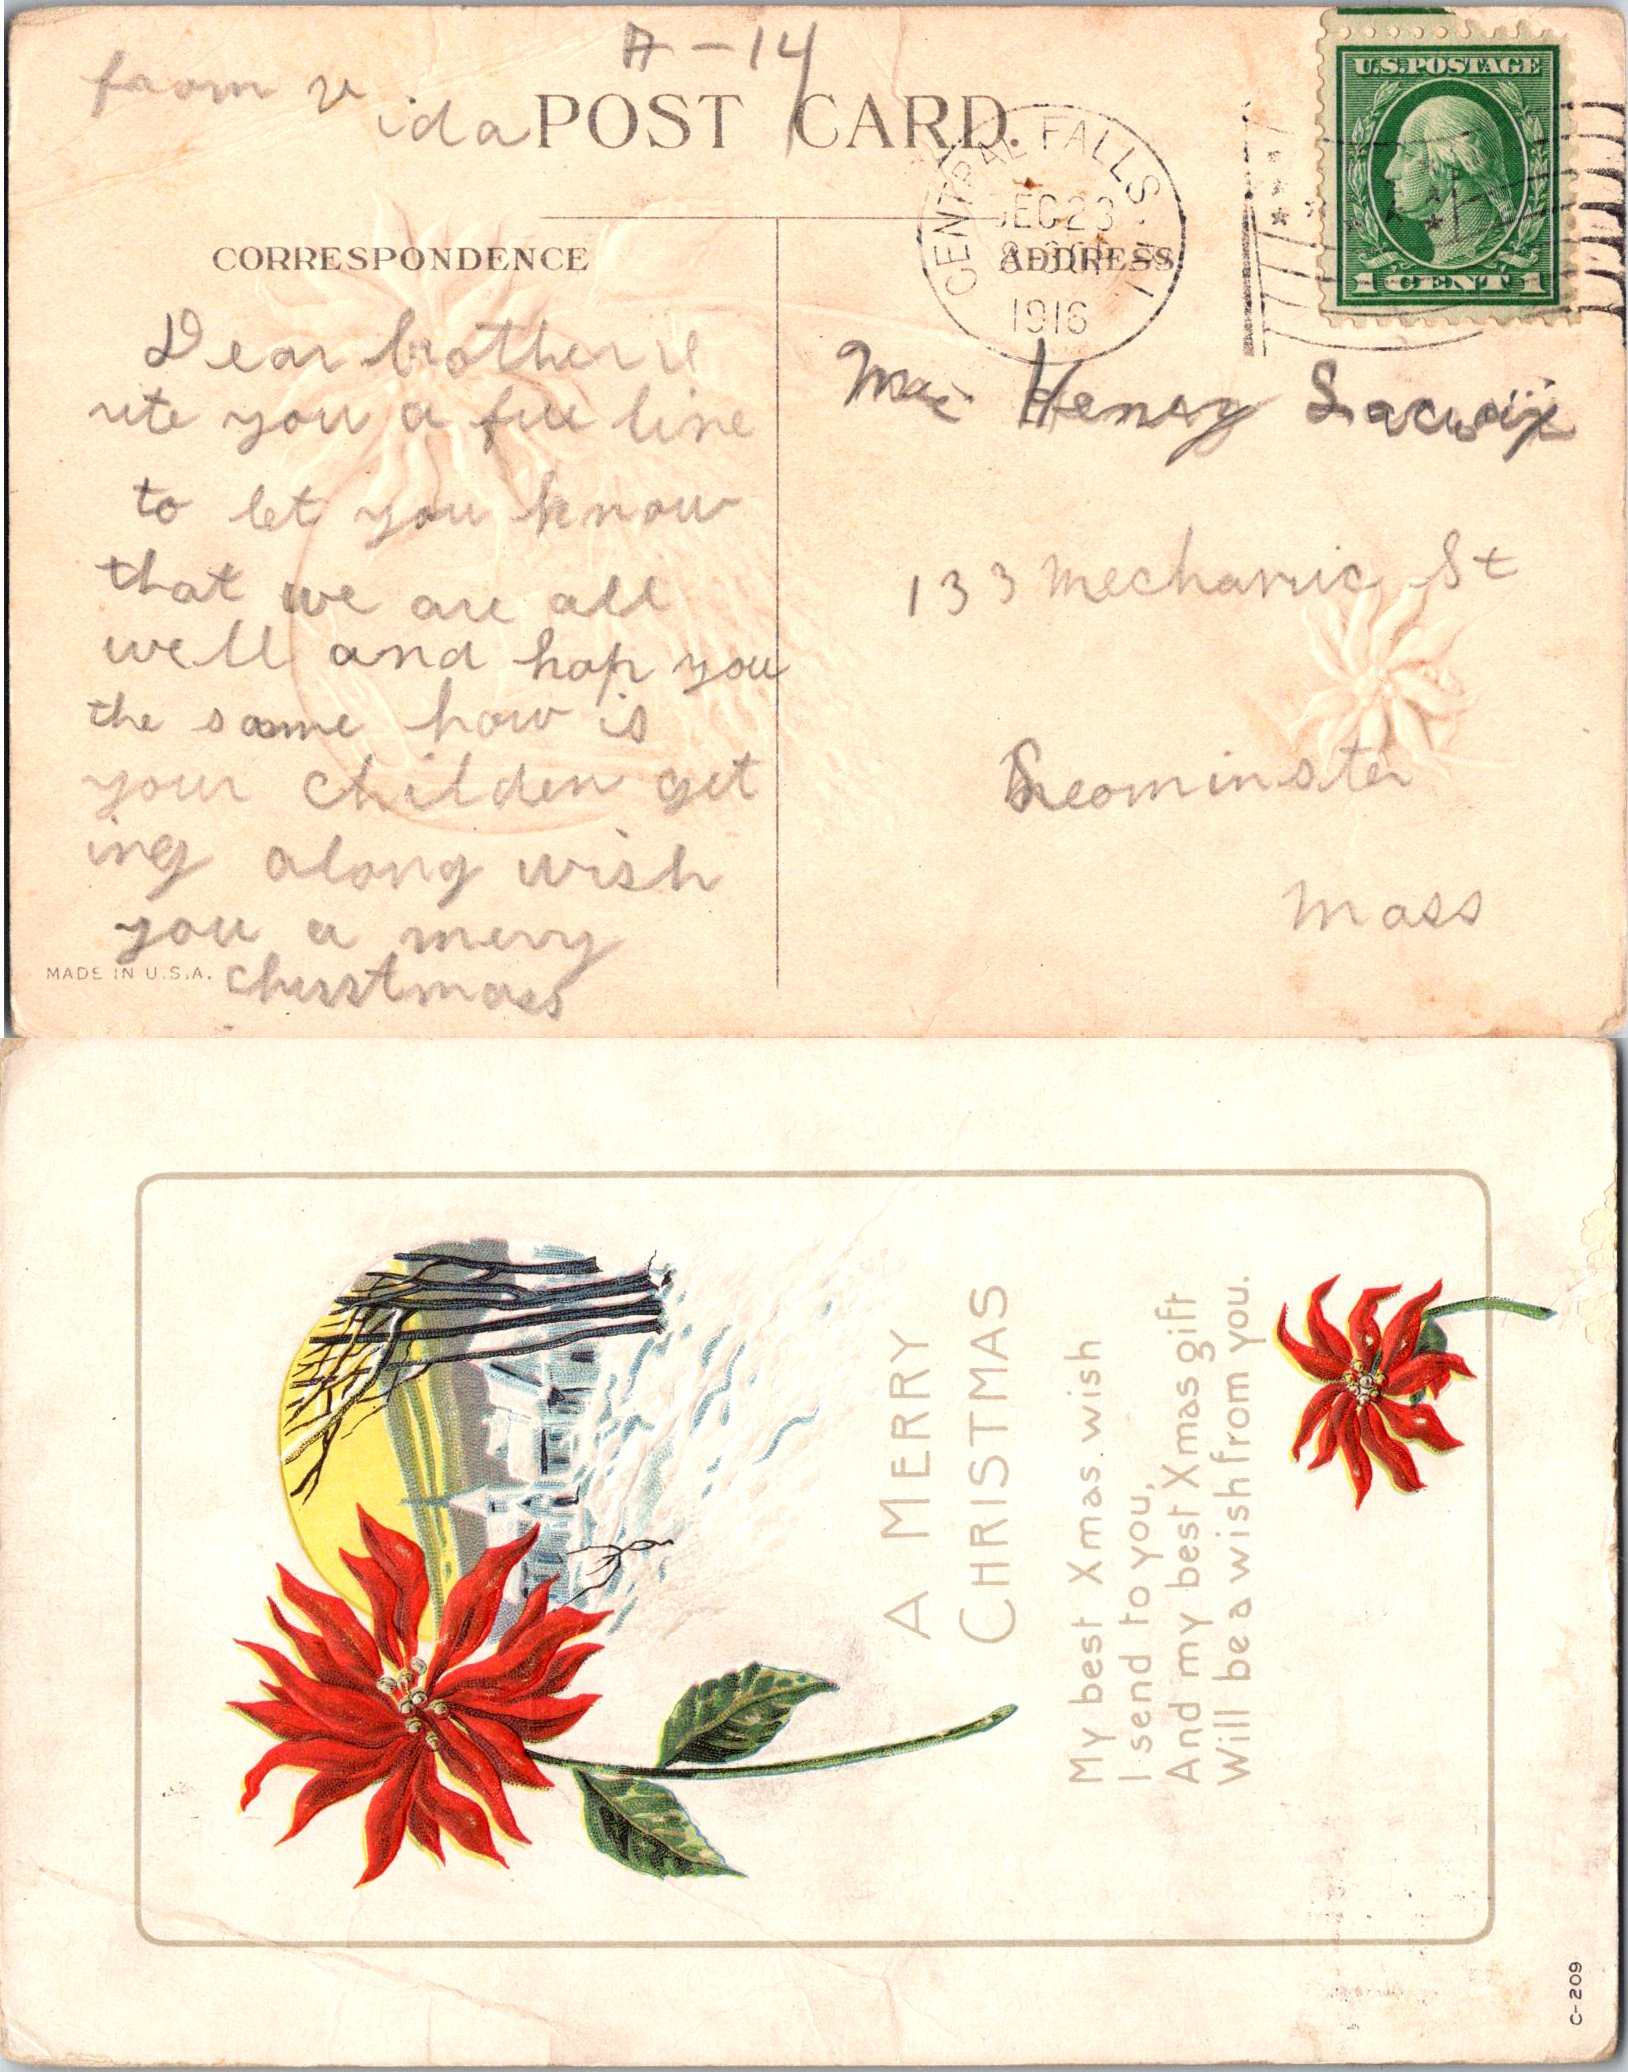 A-14
from
ida
POST CARD.
U.S. POSTAGE
1 CENT 1
CENTRAL FALLS R.I.
DEC 23
1916
CORRESPONDENCE
ADDRESS
Dear brother
rite you a fue line
to let you know
that we are all
well and hop you
the same how is
your childen get
ing along wish
you a merry
Henry
133 Mechanic St
Leominster
Mass
MADE IN U.S.A.
A MERRY
CHRISTMAS
My best Xmas wish
I send to you,
And my best Xmas gift
Will be a wish from you.
C-209